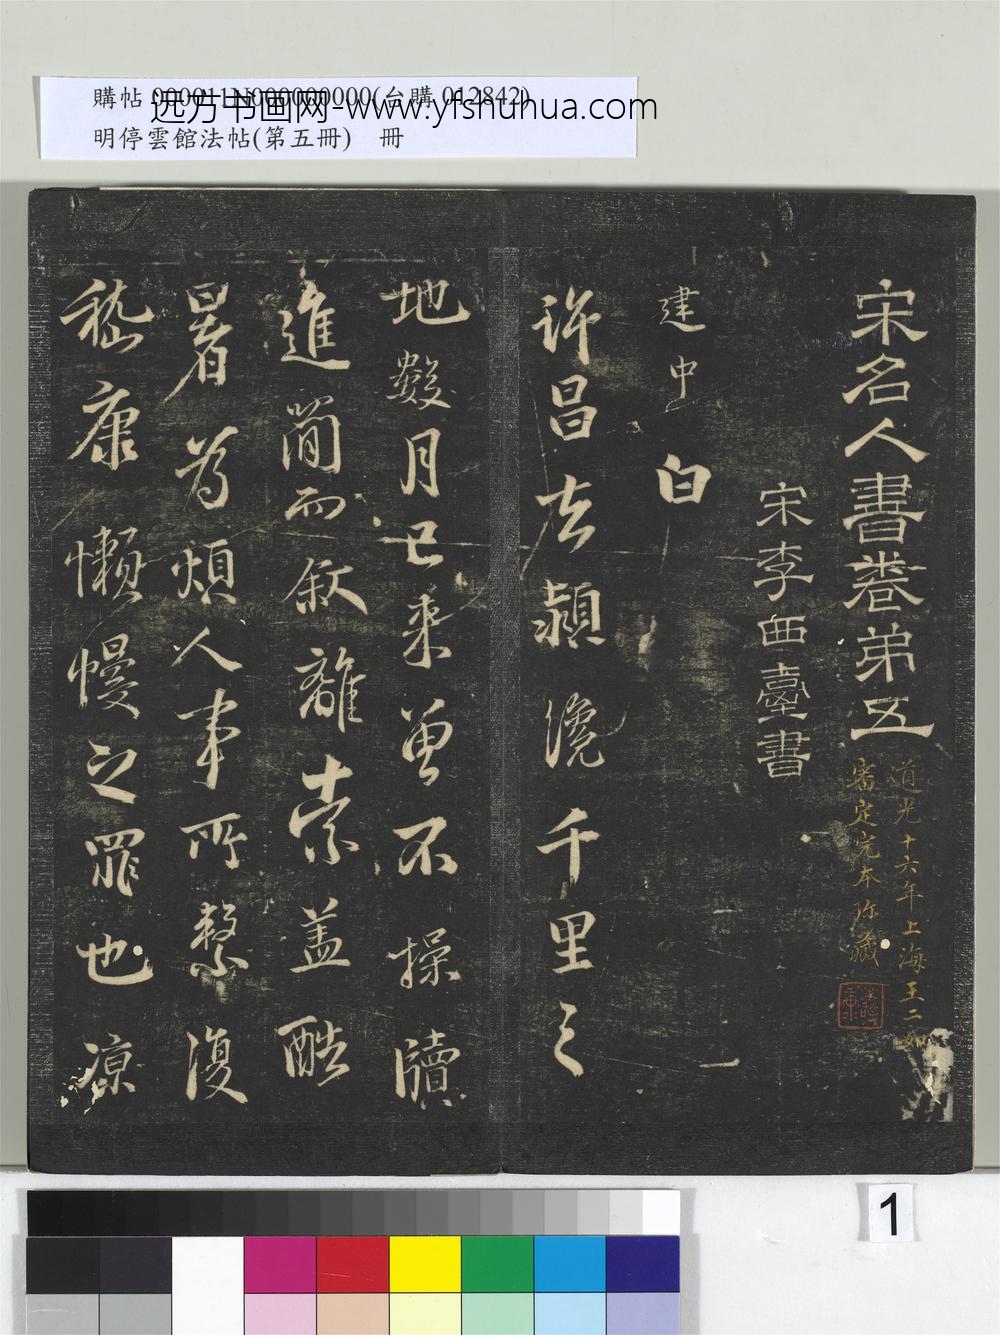 購帖 000011N000000000(台購 012842)
远方书画网-www.yfshuhua.com
明停雲館法帖(第五冊)　冊
宋名人書卷弟五
道光十六年上海王二如
審定完本珎藏
宋李西臺書
建中白
許昌去潁纔千里之
地數月已來曾不操牘
進簡而叙離索蓋酷
暑爲煩人事所繫復
嵇康懶慢之罪也凉
1